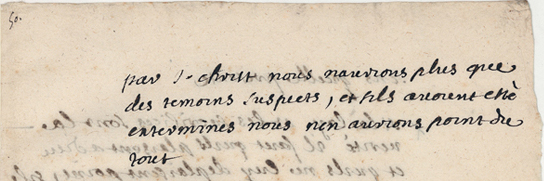 50.
par J-christ nous naurions plus que
des temoins suspects, et sils avoient esté
exterminés nous nen aurions point du
tout